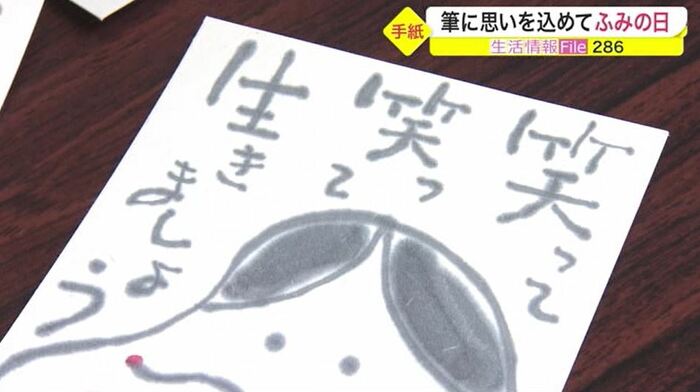 手紙
筆に思いを込めてふみの日
生活情報File 286
笑って
笑って
生きましょう